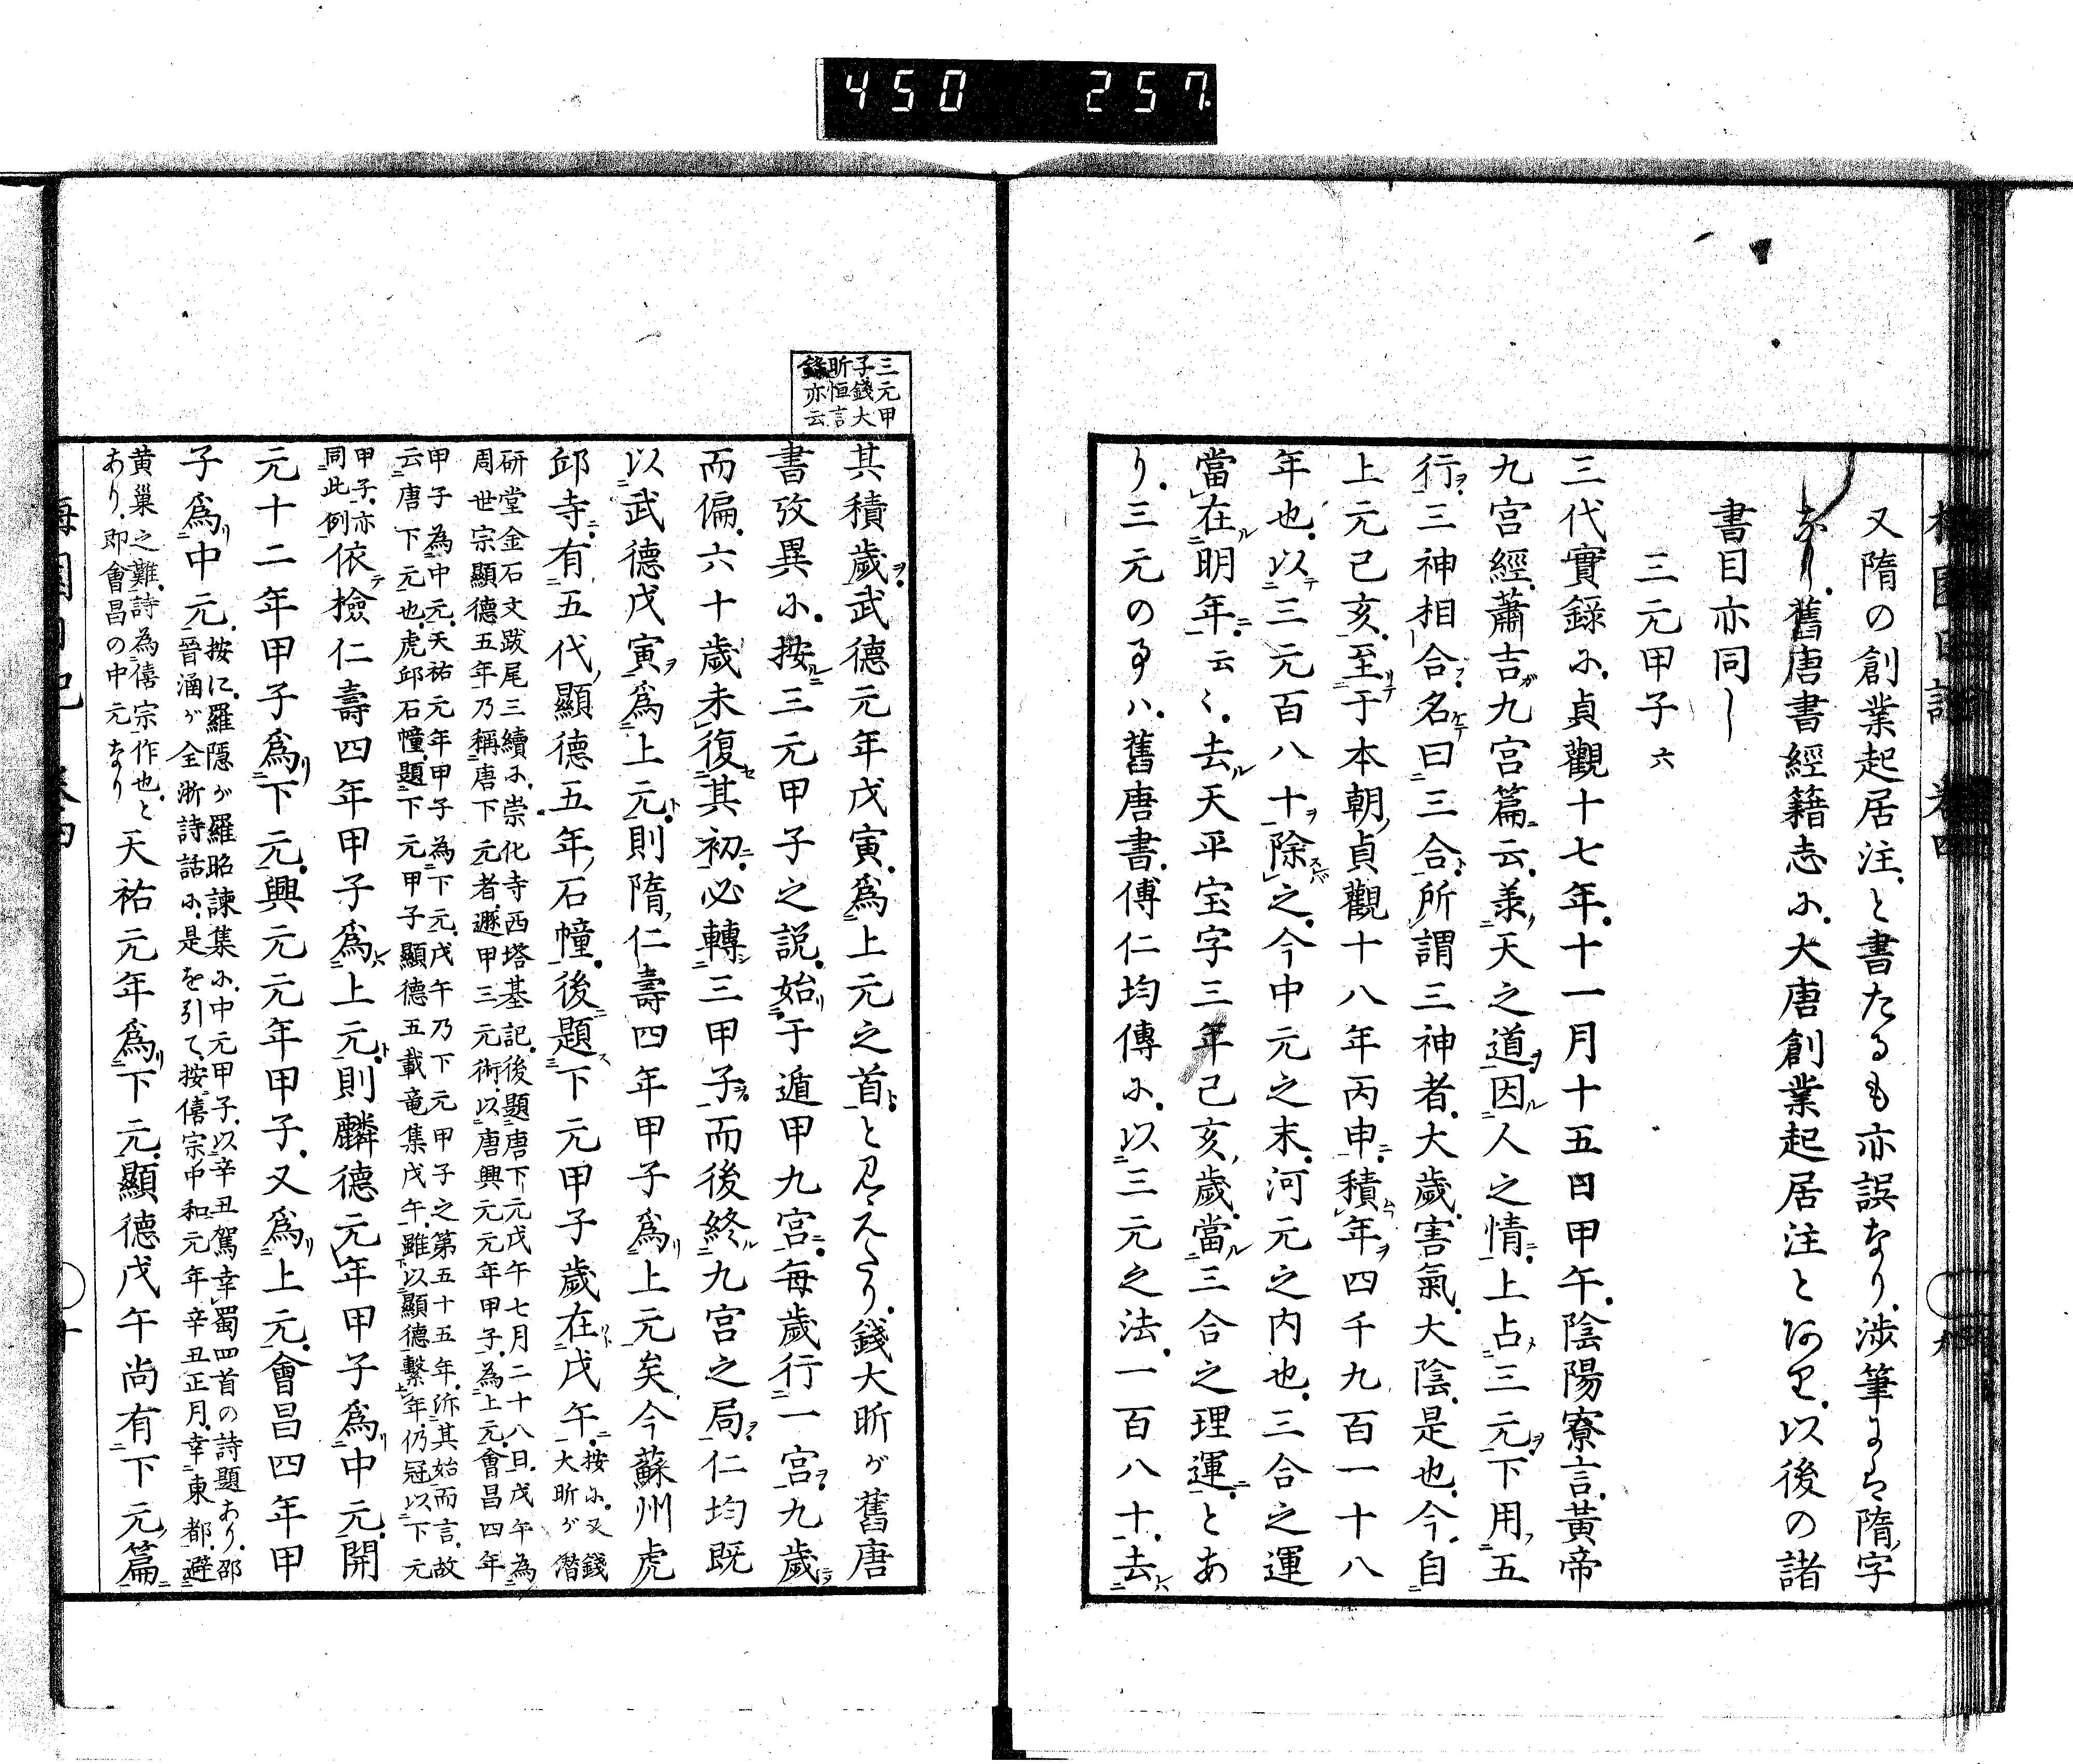 450 257
又隋の創業起居注と書たるも亦誤なり渉筆には隋字
なし舊唐書經籍志に大唐創業起居注とあり以後の諸
書目亦同し
三元甲子 六
三代實録に貞觀十七年十一月十五日甲午陰陽寮言黃帝
九宮經蕭吉九宮篇云羕天之道因人之情上占三元下用五
行三神相合名曰三合所謂三神者大歲害氣大陰是也今自
上元己亥至于本朝貞觀十八年丙申積年四千九百一十八
年也以三元百八十除之今中元之末河元之内也三合之運
當在明年云〻去天平宝字三年己亥歲當三合之理運とあ
り三元の事ハ舊唐書傅仁均傳に以三元之法一百八十去
三元甲
子錢大
昕恒言
錄亦云
其積歲武德元年戊寅爲上元之首と見えたり錢大昕が舊唐
書攷異に按三元甲子之説始于遁甲九宮每歲行一宮九歲
而偏六十歲未復其初必轉三甲子而後終九宮之局仁均既
以武德戊寅爲上元則隋仁壽四年甲子爲上元矣今蘇州虎
邱寺有五代顯德五年石幢後題下元甲子歲在戊午按に又錢
大昕が潛
研堂金石文跋尾三續に崇化寺西塔基記後題唐下元戊午七月二十八日戊午為
周世宗顯德五年乃稱唐下元者遯甲三元術以唐興元元年甲子為上元會昌四年
甲子為中元天祐元年甲子為下元戊午乃下元甲子之第五十五年泝其始而言故
云唐下元也虎邱石幢題下元甲子顯德五載竜集戊午雖以顯德繫年仍冠以下元
甲子亦
同此例依檢仁壽四年甲子爲上元則麟德元年甲子爲中元開
元十二年甲子爲下元興元元年甲子又爲上元會昌四年甲
子爲中元按に羅隱が羅昭諫集に中元甲子以辛丑駕幸蜀四首の詩題あり邵
晉涵が全浙詩話に是を引て按僖宗中和元年辛丑正月幸東都避
黃巢之難詩為僖宗作也と
あり即會昌の中元なり天祐元年爲下元顯德戊午尚有下元篇